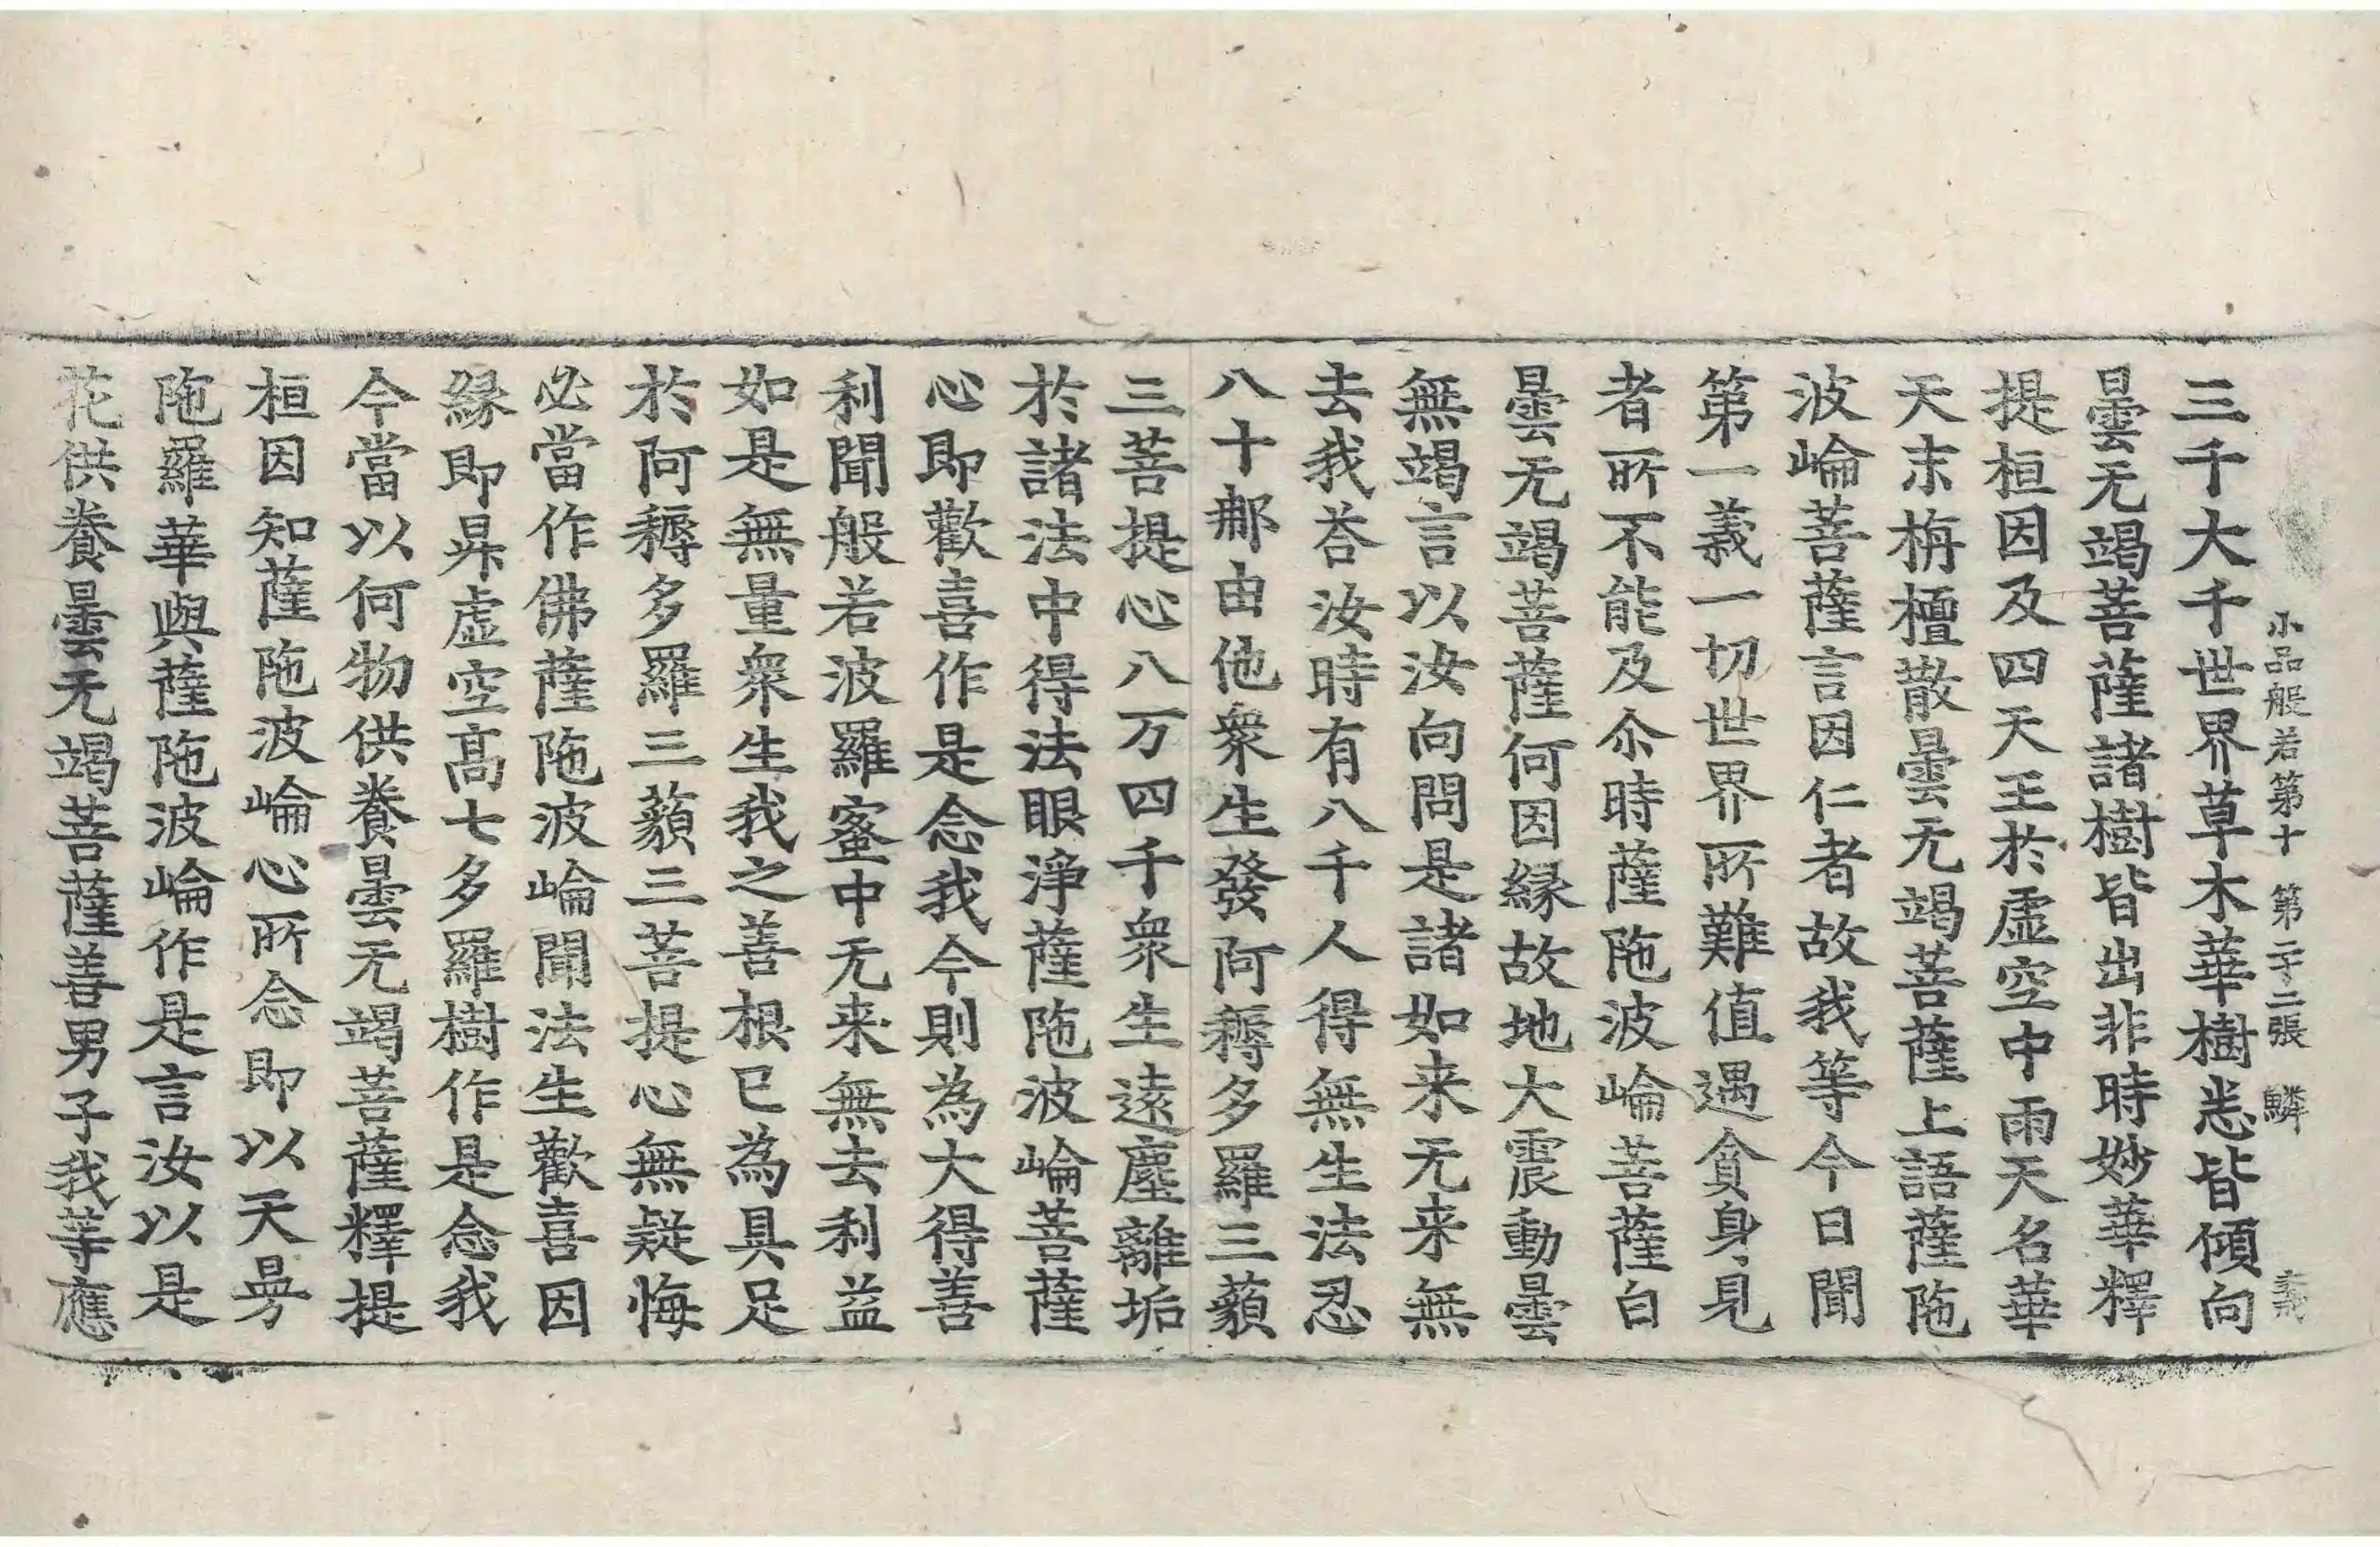 小品般若第十 第二十二張 鱗
三千大千世界草木華樹悉皆傾向
曇无竭菩薩諸樹皆出非時妙華釋
提桓因及四天王於虛空中雨天名華
天末栴檀散曇无竭菩薩上語薩陁
波崘菩薩言因仁者故我等今日聞
第一義一切世界所難值遇貪身見
者所不能及尒時薩陁波崘菩薩白
曇无竭菩薩何因縁故地大震動曇
無竭言以汝向問是諸如来无来無
去我荅汝時有八千人得無生法忍
八十那由他衆生發阿耨多羅三藐
三菩提心八万四千衆生遠塵離垢
於諸法中得法眼淨薩陁波崘菩薩
心即歡喜作是念我今則為大得善
利聞般若波羅蜜中无来無去利益
如是無量衆生我之善根已為具足
於阿耨多羅三藐三菩提心無疑悔
必當作佛薩陁波崘聞法生歡喜因
縁即昇虛空高七多羅樹作是念我
今當以何物供養曇无竭菩薩釋提
桓因知薩陁波崘心所念即以天曼
陁羅華與薩陁波崘作是言汝以是
花供養曇无竭菩薩善男子我等應